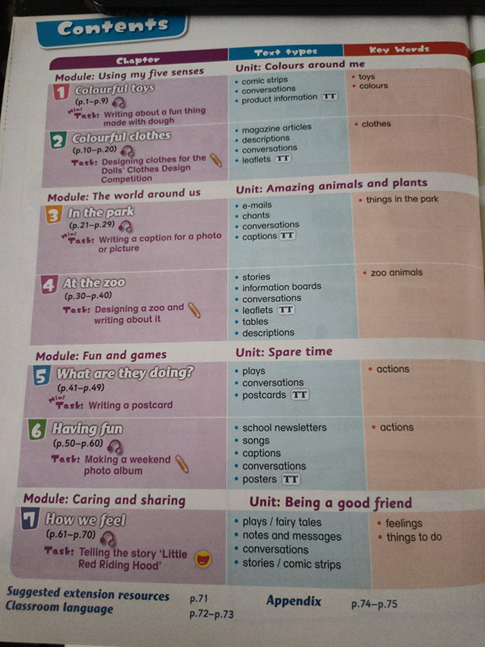 Contents
Chapter Text types Key Words
Module: Using my five senses Unit: Colours around me
1 Colourful toys
(p.1–p.9)
Mini Task: Writing about a fun thing
made with dough
• comic strips
• conversations
• product information TT
• toys
• colours
2 Colourful clothes
(p.10–p.20)
Task: Designing clothes for the
Dolls' Clothes Design
Competition
• magazine articles
• descriptions
• conversations
• leaflets TT
• clothes
Module: The world around us Unit: Amazing animals and plants
3 In the park
(p.21–p.29)
Mini Task: Writing a caption for a photo
or picture
• e-mails
• chants
• conversations
• captions TT
• things in the park
4 At the zoo
(p.30–p.40)
Task: Designing a zoo and
writing about it
• stories
• information boards
• conversations
• leaflets TT
• tables
• descriptions
• zoo animals
Module: Fun and games Unit: Spare time
5 What are they doing?
(p.41–p.49)
Mini Task: Writing a postcard
• plays
• conversations
• postcards TT
• actions
6 Having fun
(p.50–p.60)
Task: Making a weekend
photo album
• school newsletters
• songs
• captions
• conversations
• posters TT
• actions
Module: Caring and sharing Unit: Being a good friend
7 How we feel
(p.61–p.70)
Task: Telling the story 'Little
Red Riding Hood'
• plays / fairy tales
• notes and messages
• conversations
• stories / comic strips
• feelings
• things to do
Suggested extension resources p.71
Classroom language p.72–p.73
Appendix p.74–p.75